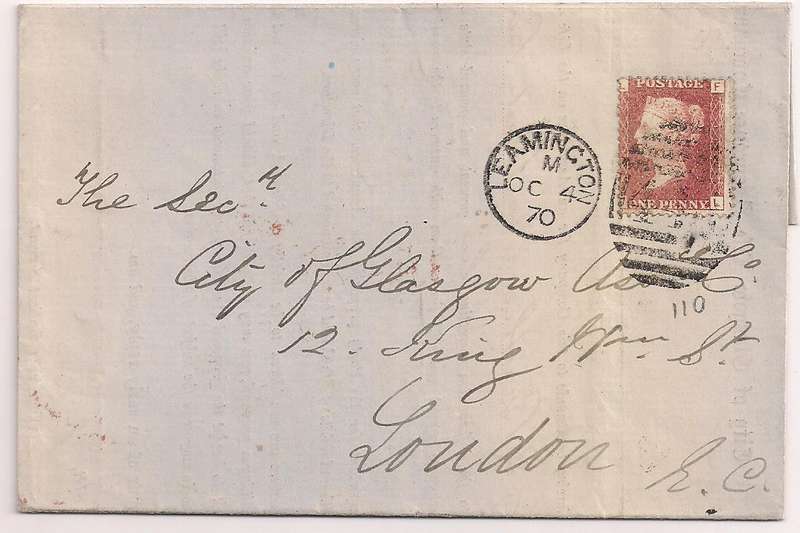 POSTAGE
F
ONE PENNY
L
LEAMINGTON
M
OC 4
70
The Secy.
City of Glasgow Ass Co.
12. King Wm St.
London
E.C.
110